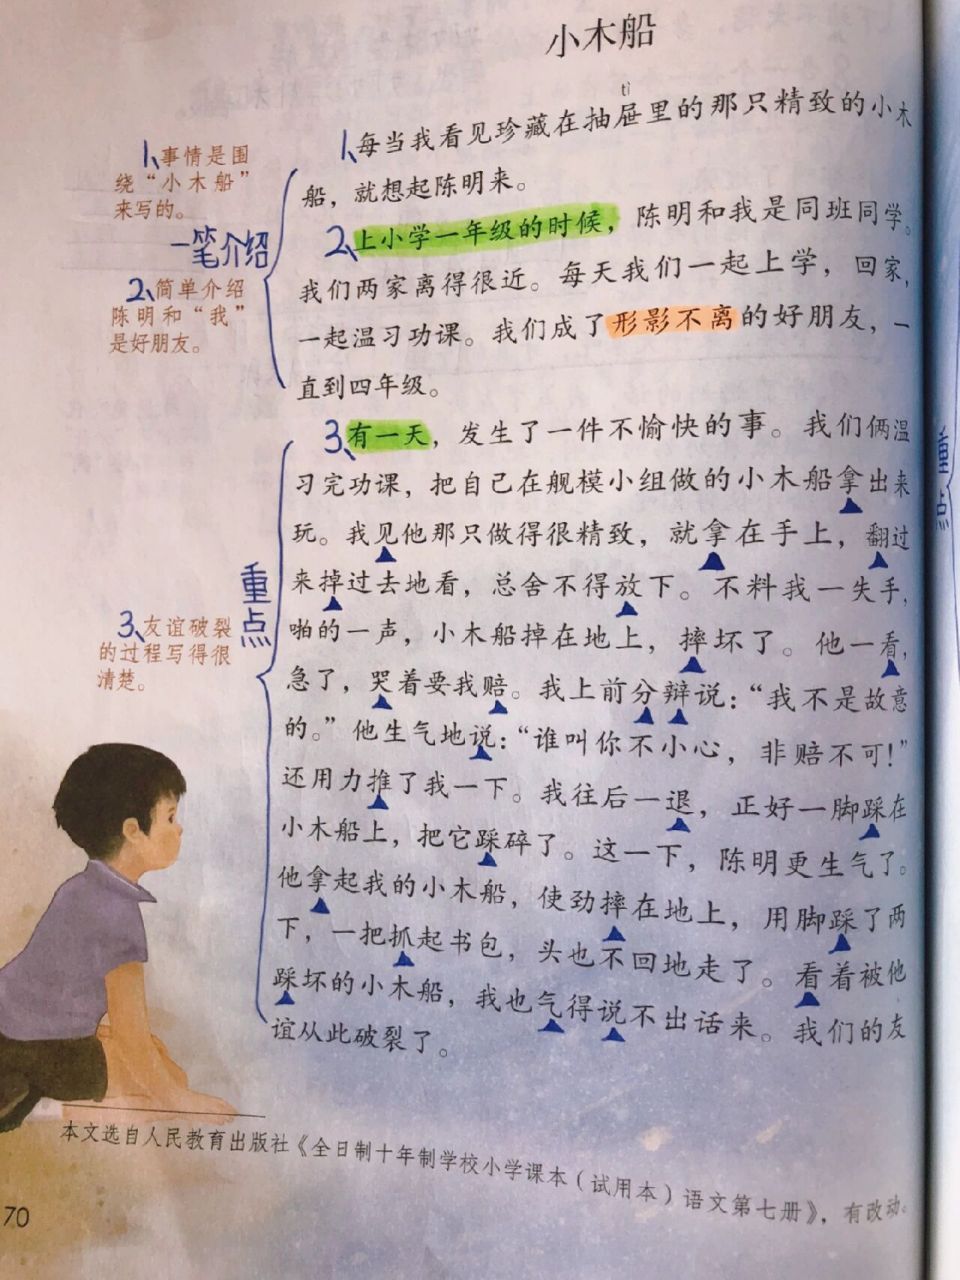 小木船
tì
1、每当我看见珍藏在抽屉里的那只精致的小木
船，就想起陈明来。
2、上小学一年级的时候，陈明和我是同班同学。
我们两家离得很近。每天我们一起上学，回家，
一起温习功课。我们成了形影不离的好朋友，一
直到四年级。
3、有一天，发生了一件不愉快的事。我们俩温
习完功课，把自己在舰模小组做的小木船拿出来
玩。我见他那只做得很精致，就拿在手上，翻过
来掉过去地看，总舍不得放下。不料我一失手，
啪的一声，小木船掉在地上，摔坏了。他一看，
急了，哭着要我赔。我上前分辩说：“我不是故意
的。”他生气地说：“谁叫你不小心，非赔不可！”
还用力推了我一下。我往后一退，正好一脚踩在
小木船上，把它踩碎了。这一下，陈明更生气了。
他拿起我的小木船，使劲摔在地上，用脚踩了两
下，一把抓起书包，头也不回地走了。看着被他
踩坏的小木船，我也气得说不出话来。我们的友
谊从此破裂了。
1、事情是围
绕“小木船”
来写的。
一笔介绍
2、简单介绍
陈明和“我”
是好朋友。
重点
3、友谊破裂
的过程写得很
清楚。
本文选自人民教育出版社《全日制十年制学校小学课本（试用本）语文第七册》，有改动。
70
重点